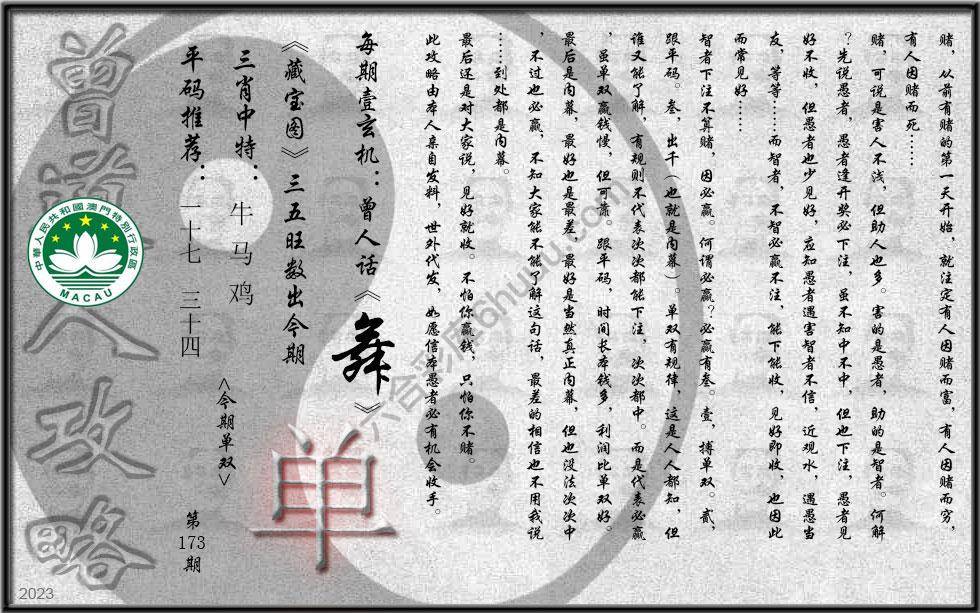 赌，从前有赌的第一天开始，就注定有人因赌而富，有人因赌而穷，
有人因赌而死……
赌，可说是害人不浅，但助人也多。害的是愚者，助的是智者。何解
？先说愚者，愚者逢开奖必下注，虽不知中不中，但也下注，愚者见
好不收，但愚者也少见好，应知愚者遇害智者不信，近观水，遇愚当
友，等等……而智者，不智必赢不注，能下能收，见好即收，也因此
而常见好……
智者下注不算赌，因必赢，何谓必赢？必赢有叁。壹，搏单双。贰，
跟平码。叁，出千（也就是内幕）。单双有规律，这是人人都知，但
谁又能了解，有规则不代表次次都能下注，次次都中。而是代表必赢
，虽单双赢钱慢，但可靠。跟平码，时间长本钱多，利润比单双好。
最后是内幕，最好也是最差，最好是当然真正内幕，但也没法次次中
，不过也必赢，不知大家能不能了解这句话，最差的相信也不用我说
……到处都是内幕。
最后还是对大家说，见好就收。不怕你赢钱，只怕你不赌。
此攻略由本人亲自发料，世外代发，如愿信本愚者必有机会收手。
每期壹玄机：曾人话《舞》
《藏宝图》三五旺数出今期
三肖中特：牛 马 鸡
平码推荐：二十七 三十四
<今期单双>
单
第173期
曾道人攻略
中華人民共和國澳門特別行政區
MACAU
六合彩库6huhu.com
2023